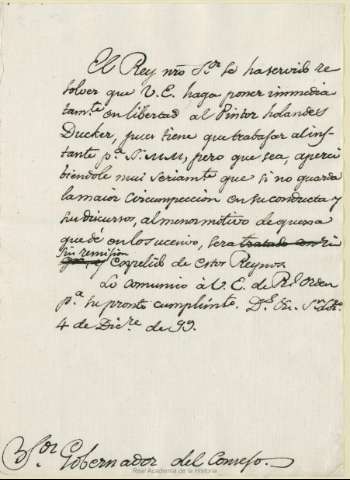 El Rey nrō S.or se ha servido re
solver que V.E. haga poner immedia
tam.te en libertad al Pintor holandes
Ducker, pues tiene que trabajar al ins
tante p.a S.S.M.M., pero que sea, aperci
biendole mui seriamte que si no guarda
la maior circunspeccion en su conducta y
sus discursos, al menor motivo de quexa
que dé en lo sucesivo, sera tratado con ri
sin remision
y expelido de estos Reynos.
Lo comunico á V.E. de Rl. orden
p.a su pronto cumplimto. D.s &c. S.n
4 de Dic.re de 99.
S.or Gobernador del Consejo.
Real Academia de la Historia